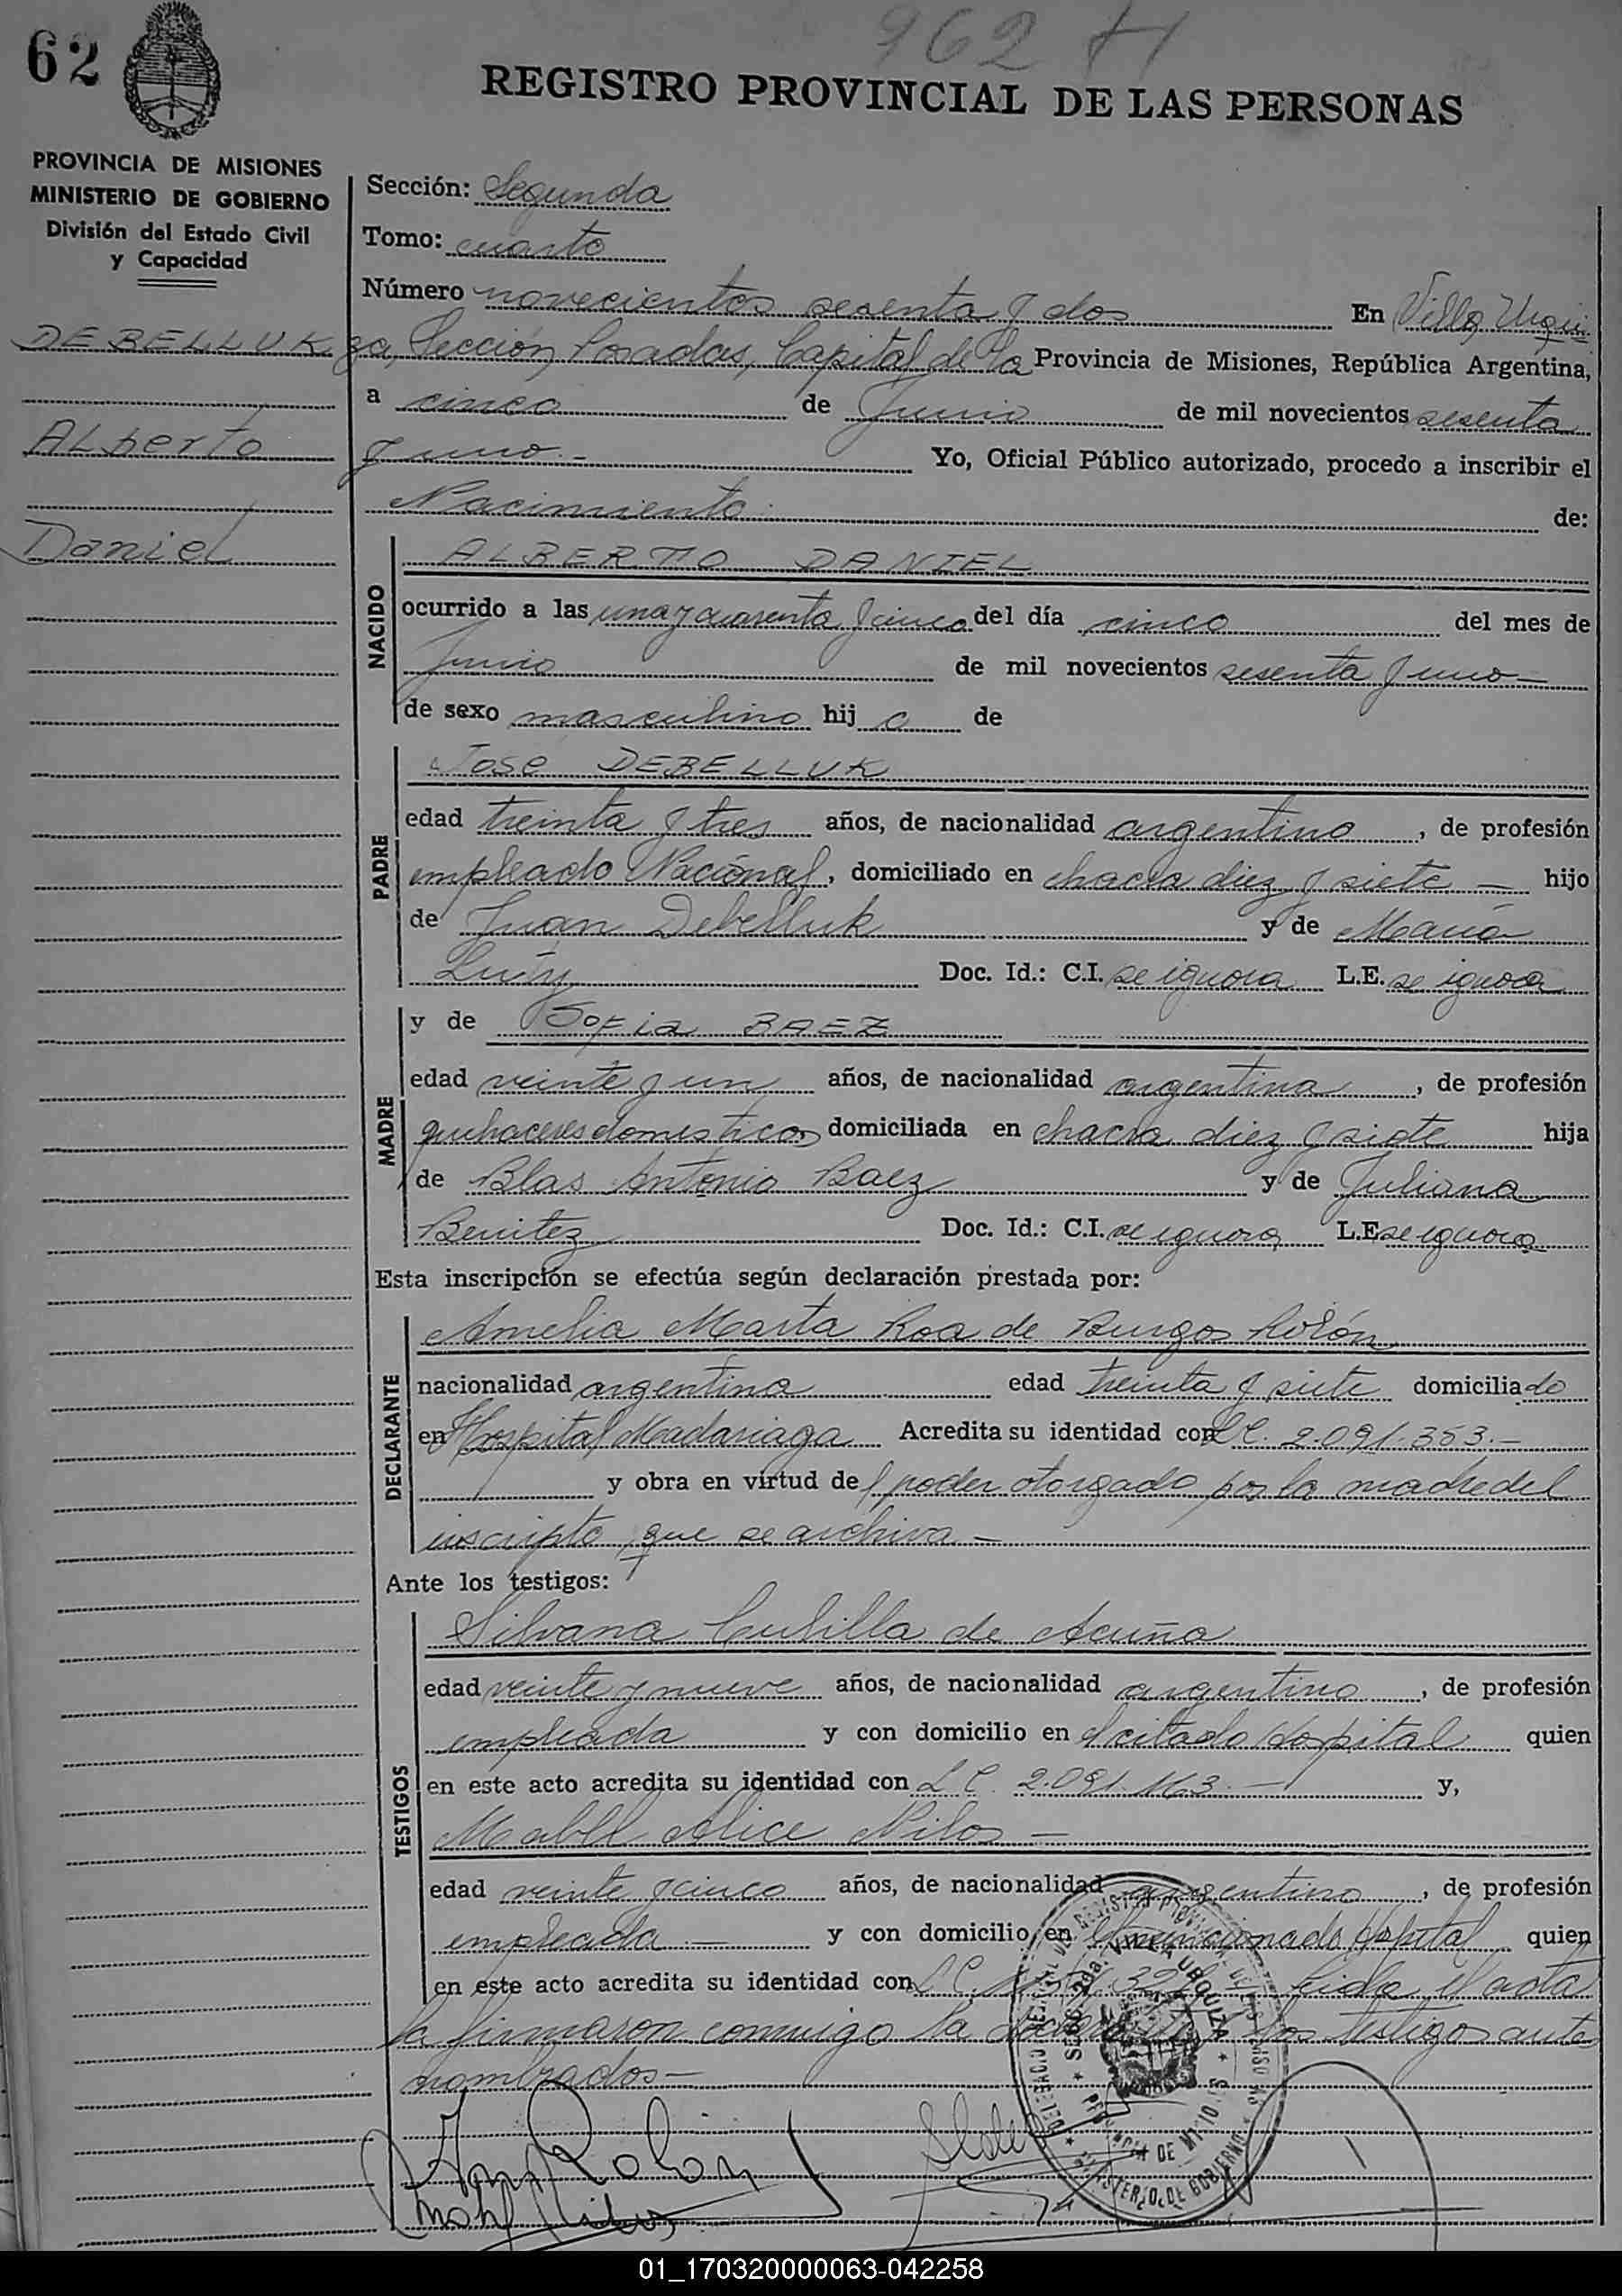 962 H
62
REGISTRO PROVINCIAL DE LAS PERSONAS
PROVINCIA DE MISIONES
MINISTERIO DE GOBIERNO
División del Estado Civil
y Capacidad
DEBELLUK
Alberto
Daniel
Sección: Segunda
Tomo: cuarto
Número novecientos sesenta y dos En Villa Urqui
za, Sección Posadas, Capital de la Provincia de Misiones, República Argentina,
a cinco de Junio de mil novecientos sesenta
y uno.- Yo, Oficial Público autorizado, procedo a inscribir el
Nacimiento de:
NACIDO
ALBERTO DANIEL
ocurrido a las una y cuarenta y cinco del día cinco del mes de
Junio de mil novecientos sesenta y uno-
de sexo masculino hij o de
PADRE
José DEBELLUK
edad treinta y tres años, de nacionalidad argentino, de profesión
empleado Nacional, domiciliado en chacra diez y siete - hijo
de Juan Debelluk y de María
Doc. Id.: C.I. se ignora L.E. se ignora
MADRE
y de Sofia BAEZ
edad veinte y un años, de nacionalidad argentina, de profesión
quehaceres domesticos domiciliada en chacra diez y siete hija
de Blas Antonio Baez y de Juliana
Benitez Doc. Id.: C.I. se ignora L.E. se ignora
Esta inscripción se efectúa según declaración prestada por:
DECLARANTE
Amelia Marta Roa de Burgos Rolón
nacionalidad argentina edad treinta y siete domiciliado
en Hospital Madariaga Acredita su identidad con L.C. 2.091.353.-
y obra en virtud de poder otorgado por la madre del
inscripto, que se archiva-
Ante los testigos:
TESTIGOS
Silvana de Acuña
edad veinte y nueve años, de nacionalidad argentino, de profesión
empleada y con domicilio en el citado Hospital quien
en este acto acredita su identidad con L.C. 2.091.163.- y,
Mabel Alice -
edad veinte y cinco años, de nacionalidad argentino, de profesión
empleada - y con domicilio en el mencionado Hospital quien
en este acto acredita su identidad con L.C. Leida el acta
la firmaron conmigo la los testigos ante
nombrados-
SECC. 2da. VILLA URQUIZA
PROVINCIA DE MISIONES
MINISTERIO DE GOBIERNO
01_170320000063-042258